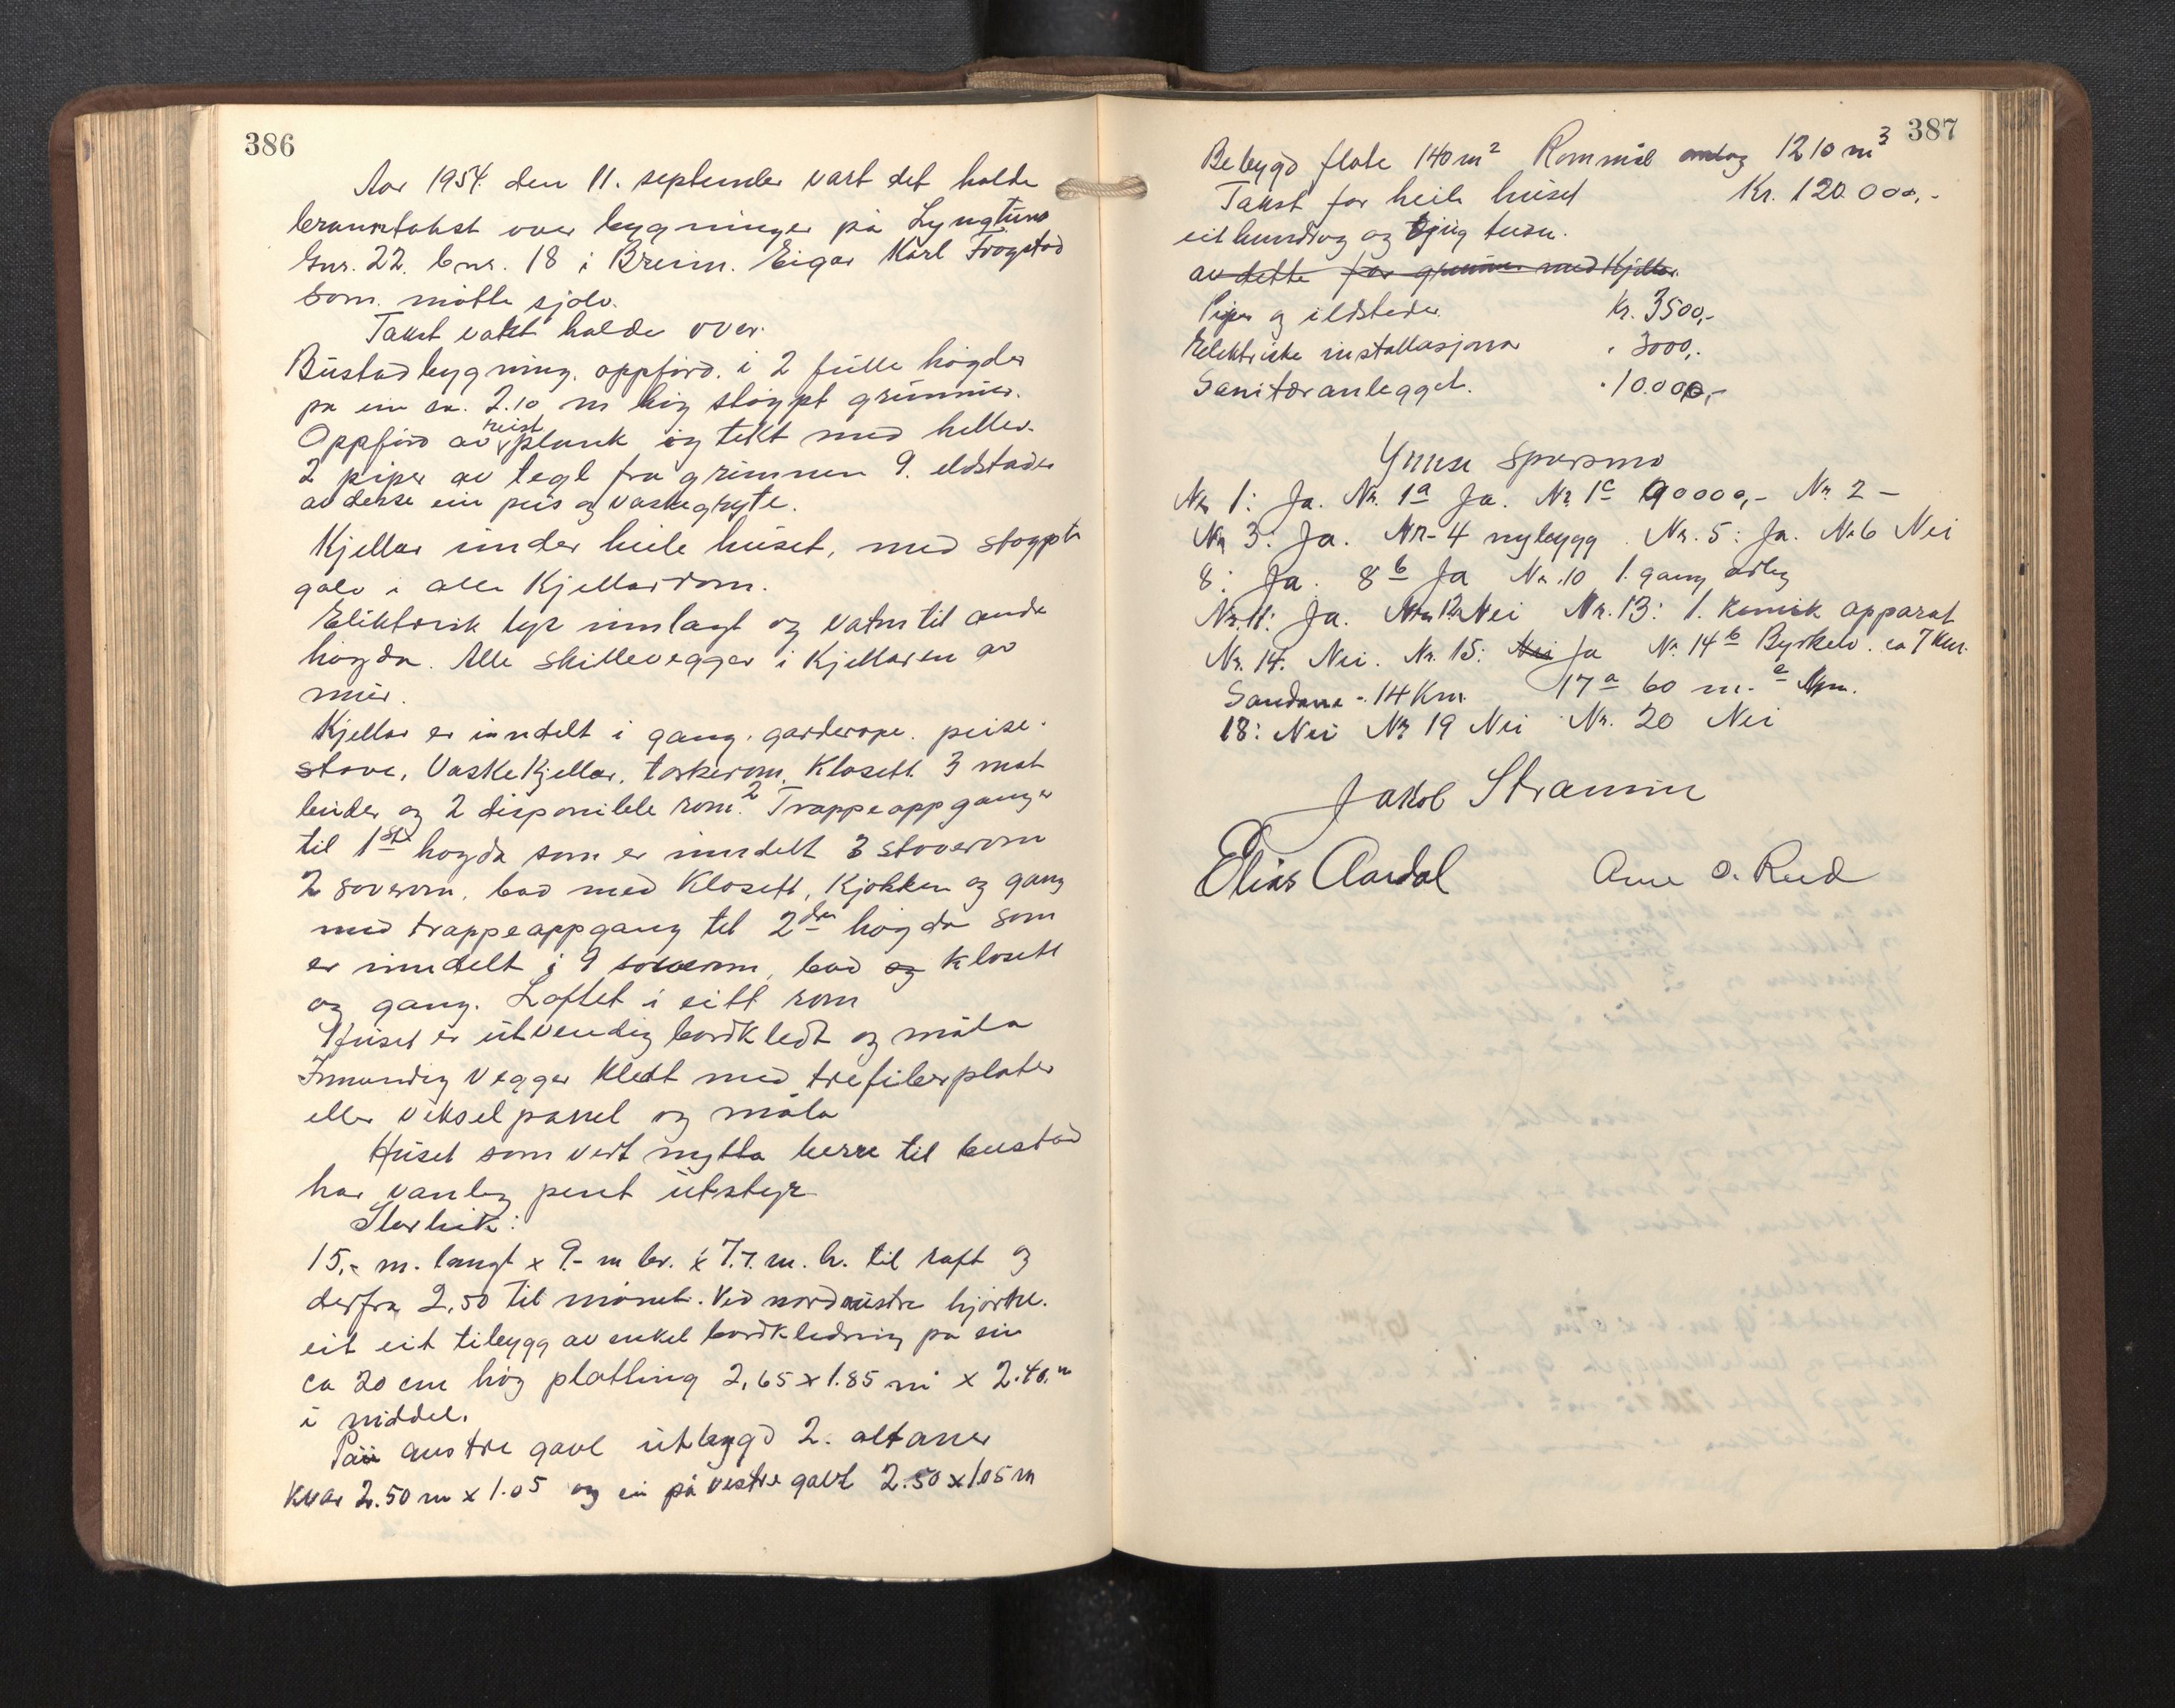 386
Aar 1954 den 11. september vart det halde
branntakst over bygninger på Lyngtun
Gnr. 22. bnr. 18 i Breim. Eigar Karl Frøystad
som møtte sjølv.
Takst vart halde over.
Bustadbygning. oppførd. i 2 fulle høgder
på ein ca. 2.10 m høg støypt grunnmur.
Oppførd av reist plank og tekt med heller.
2 piper av tegl fra grunnen 9. eldstader
av desse ein peis og vaskegryte.
Kjellar under heile huset, med støypte
golv i alle Kjellarrom.
Elektrisk lys innlagt og vatn til andre
høgda. Alle skillevegger i Kjellaren av
mur.
Kjellar er inndelt i gang. garderope. peise-
stove, Vaskekjellar, torkerom, Klosett 3 mat
buder og 2 disponible rom. 2 Trappeoppganger
til 1ste høgda som er inndelt 3 stoverom
2 soverom, bad med Klosett, Kjøkken og gang
med trappeoppgang til 2dre høgda som
er inndelt i 9 soverom, bad og klosett
og gang. Loftet i eitt rom
Huset er utvendig bordkledt og måla
Innvendig vegger kledt med trefiberplater
eller vekselpanel og måla
Huset som vert nytta berre til bustad
har vanleg pent utstyr
Storleik:
15,- m. langt x 9.- m br. x 7.7. m. h. til raft og
derfra 2,50 til mønet. Ved nordaustre hjørne.
eit eit tilbygg av enkel bordkledning på ein
ca 20 cm høg platting 2,65 x 1.85 m x 2.40. m
i middel.
På austre gavl utbygd 2. altaner
Kvar 2.50 m x 1.05 og ein på vestre gavl 2.50 x 1.05 m
387
Bebygd flate 140 m² Rommål omlag 1210 m³
Takst for heile huset Kr. 120.000,-
eit hundrog og tjug tusn.
av dette for grunnmur med Kjellar.
Piper og ildsteder. Kr. 3500,-
Elektriske installasjonar " 3000,-
Sanitæranlegget. " 10.000,-
Ymse spørsmo
Nr. 1: Ja. Nr. 1a Ja. Nr 1c 90000,- Nr. 2 -
Nr 3: Ja. Nr- 4 nybygg. Nr. 5: Ja. Nr6 Nei
8: Ja. 8b Ja Nr. 10 1. gang årleg
Nr. 11: Ja. Nr. 12 Nei Nr. 13: 1. kemisk apparat
Nr. 14. Nei. Nr. 15: Nei Ja Nr 14b Byrkelo. ca 7 km.
Sandane - 14 Km. 17a 60 m.
18: Nei Nr 19 Nei Nr. 20 Nei
Jakob Straume
Elias Aardal Arne O. Reed